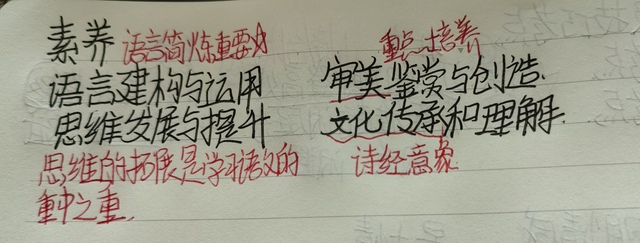 素养 语言简炼重要性 重点培养
语言建构与运用 审美鉴赏与创造.
思维发展与提升 文化传承和理解.
思维的拓展是学习语文的 诗经意象
重中之重.